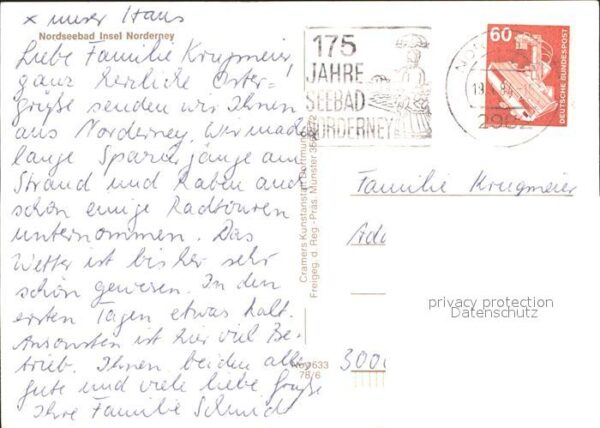 x unser Haus
Nordseebad Insel Norderney
Liebe Familie Krugmeier,
ganz herzliche Oster-
grüße senden wir Ihnen
aus Norderney. Wir machen
lange Spaziergänge am
Strand und haben auch
schon einige Radtouren
unternommen. Das
Wetter ist bisher sehr
schön gewesen. In den
ersten Tagen etwas kalt.
Ansonsten ist hier viel Be-
trieb. Ihnen beiden alles
gute und viele liebe Grüße
Ihre Familie Schmidt
175
JAHRE
SEEBAD
NORDERNEY
2982
60
DEUTSCHE BUNDESPOST
Cramers Kunstanstalt Dortmund
Freigeg. d. Reg.-Präs. Münster
633
78/6
Familie Krugmeier
privacy protection
Datenschutz
3000